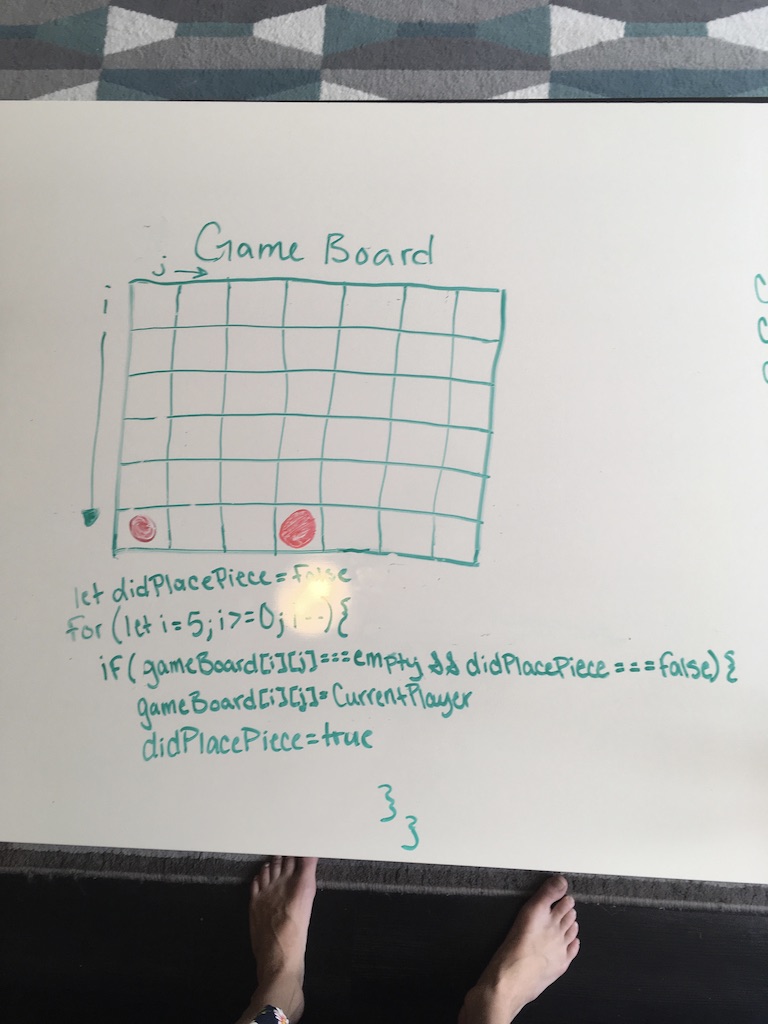 Game Board
j →
i
let didPlacePiece = false
for (let i = 5; i >= 0; i--) {
if ( gameBoard[i][j] === empty && didPlacePiece === false) {
gameBoard[i][j] = CurrentPlayer
didPlacePiece = true
}
}
C
C